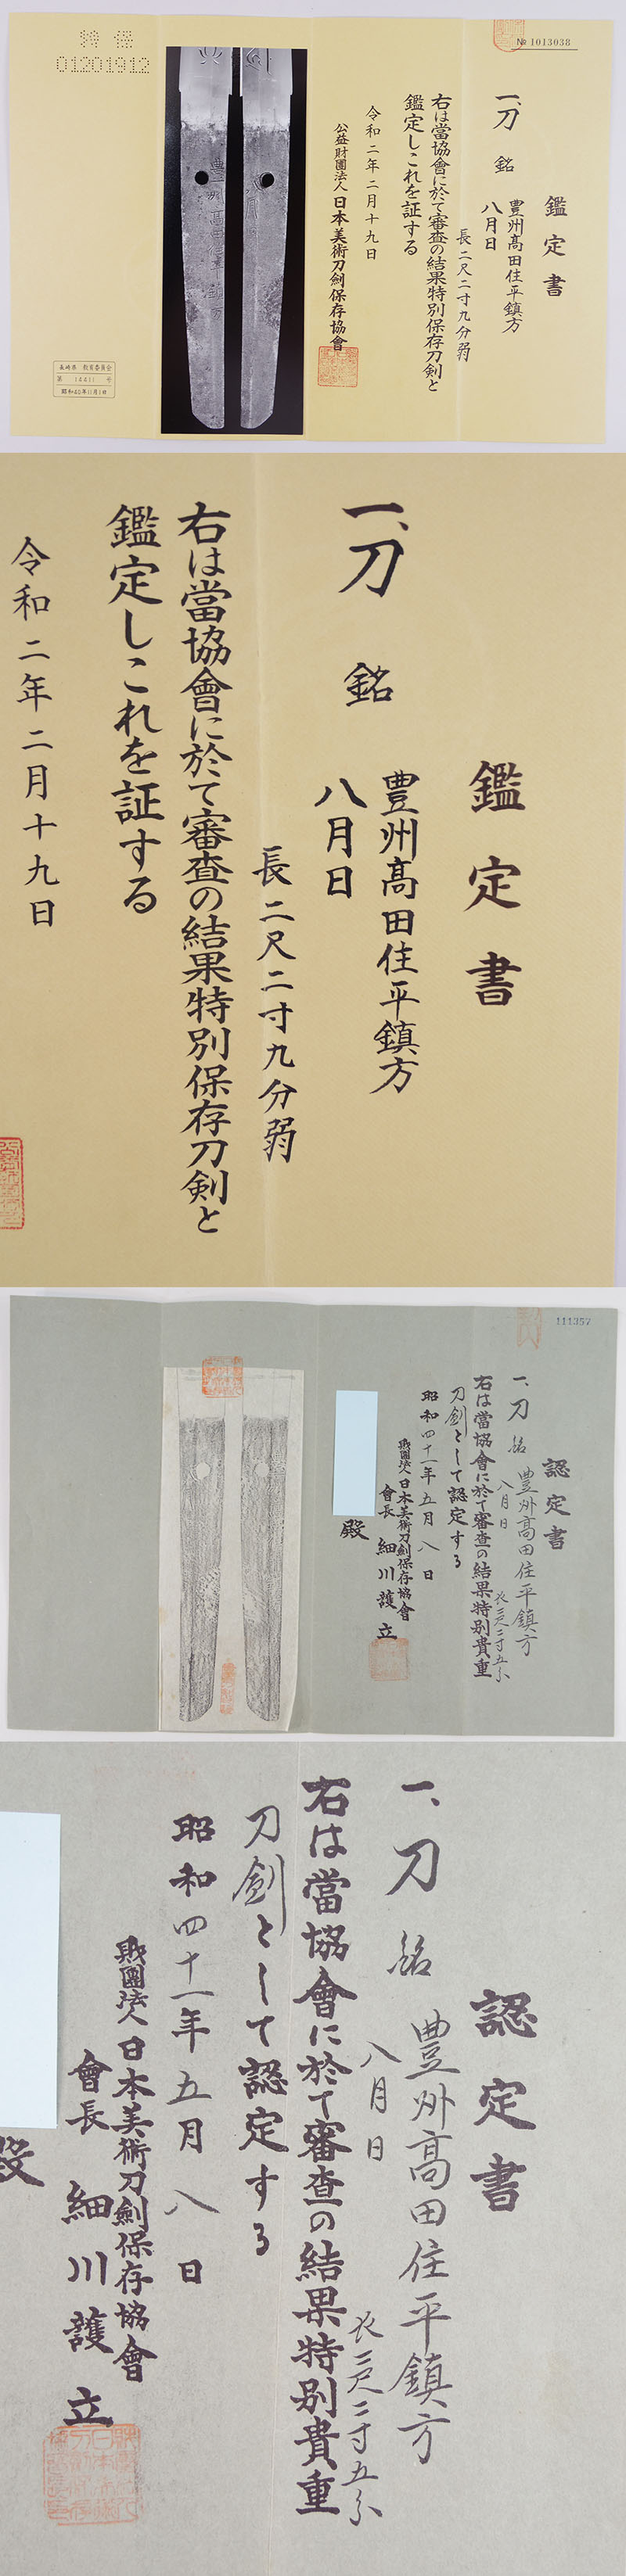 特保
01201912
№ 1013038
鑑定書
一、刀 銘 豊州髙田住平鎮方
八月日
長二尺二寸九分弱
右は當協會に於て審査の結果特別保存刀剣と
鑑定しこれを証する
令和二年二月十九日
公益財團法人日本美術刀剣保存協會
長崎県 教育委員会
第 14411 号
昭和40年11月1日
鑑定書
一、刀 銘 豊州髙田住平鎮方
八月日
長二尺二寸九分弱
右は當協會に於て審査の結果特別保存刀剣と
鑑定しこれを証する
令和二年二月十九日
111357
認定書
一、刀 銘 豊州高田住平鎮方
八月日
長二尺二寸五分
右は當協會に於て審査の結果特別貴重
刀劍として認定する
昭和四十一年五月八日
財團法人日本美術刀劍保存協會
會長 細川護立
殿
認定書
一、刀 銘 豊州高田住平鎮方
八月日
長二尺二寸五分
右は當協會に於て審査の結果特別貴重
刀劍として認定する
昭和四十一年五月八日
財團法人日本美術刀劍保存協會
會長 細川護立
殿